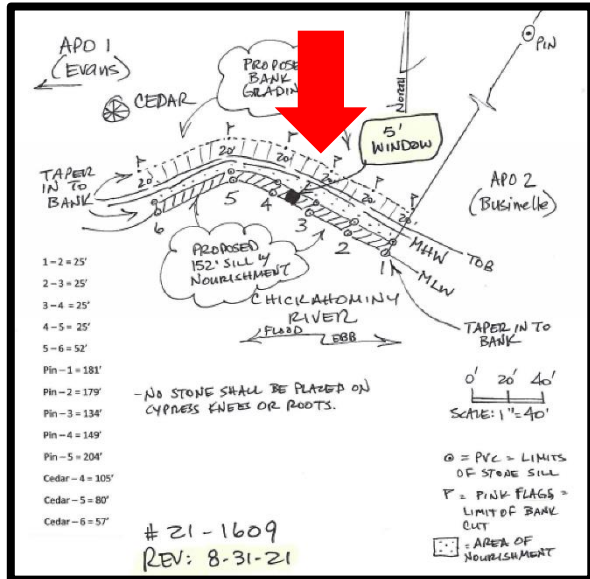 APO 1
(Evans)
CEDAR
PROPOSE
BANK
GRADIN
PIN
5'
WINDOW
NORTH
APO 2
(Businelle)
TAPER
IN TO
BANK
20'
20'
20'
20'
20'
6
5
4
3
2
1
MHW
TOB
MLW
PROPOSED
152' SILL W/
NOURISHMENT
CHICKAHOMINY
RIVER
FLOOD
EBB
TAPER IN TO
BANK
1-2 = 25'
2-3 = 25'
3-4 = 25'
4-5 = 25'
5-6 = 52'
Pin-1 = 181'
Pin-2 = 179'
Pin-3 = 134'
Pin-4 = 149'
Pin-5 = 204'
Cedar-4 = 105'
Cedar-5 = 80'
Cedar-6 = 57'
- NO STONE SHALL BE PLACED ON
CYPRESS KNEES OR ROOTS.
0' 20' 40'
SCALE: 1"=40'
= PVC = LIMITS
OF STONE SILL
= PINK FLAGS =
LIMIT OF BANK
CUT
= AREA OF
NOURISHMENT
# 21-1609
REV: 8-31-21